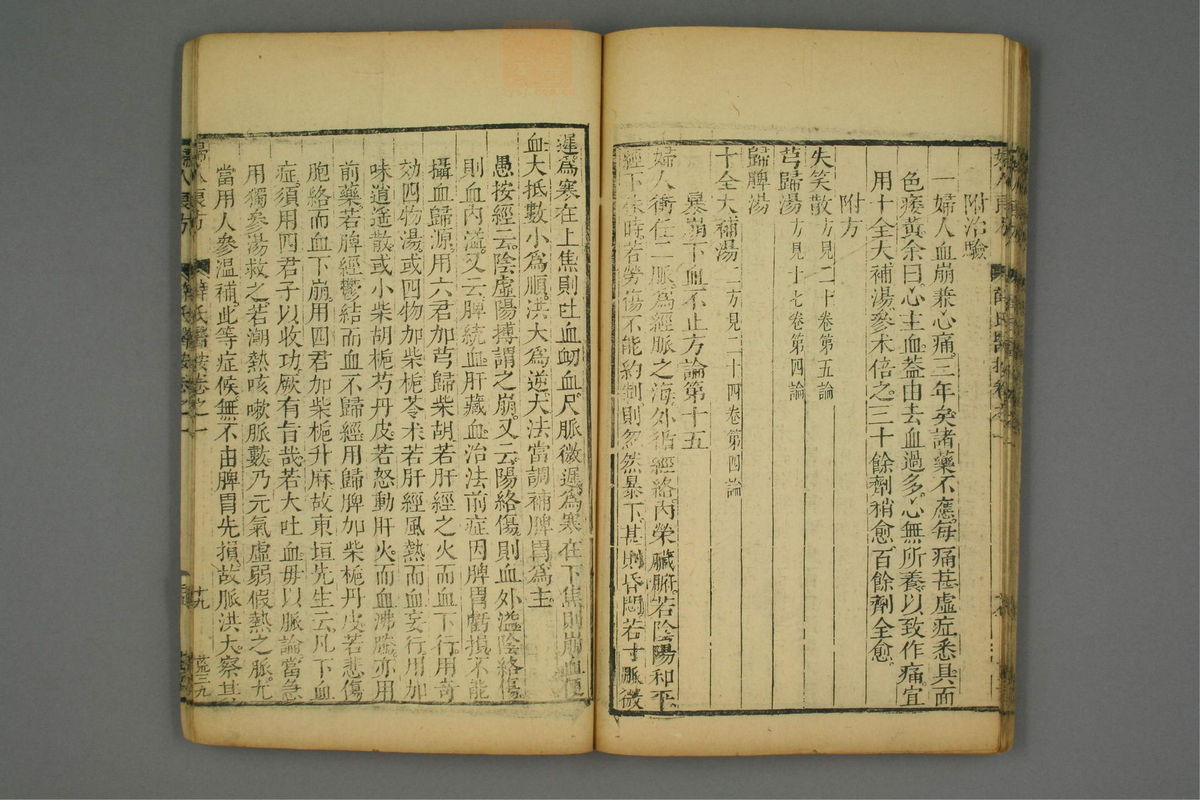 附治驗
一婦人血崩兼心痛三年矣諸藥不應每痛甚虛症悉具面
色痿黃余曰心主血蓋由去血過多心無所養以致作痛宜
用十全大補湯參朮倍之三十餘劑稍愈百餘劑全愈
附方
失笑散方見二十卷第五論
芎歸湯方見十七卷第四論
歸脾湯
十全大補湯二方見二十四卷第四論
暴崩下血不止方論第十五
婦人衝任二脈為經脈之海外循經絡內榮臟腑若陰陽和平
經下依時若勞傷不能約制則忽然暴下甚則昏悶若寸脈微
遲為寒在上焦則吐血衂血尺脈微遲為寒在下焦則崩血便
血大抵數小為順洪大為逆大法當調補脾胃為主
愚按經云陰虛陽搏謂之崩又云陽絡傷則血外溢陰絡傷
則血內溢又云脾統血肝藏血治法前症因脾胃虧損不能
攝血歸源用六君加芎歸柴胡若肝經之火而血下行用奇
効四物湯或四物加柴梔苓朮若肝經風熱而血妄行用加
味逍遙散或小柴胡梔芍丹皮若怒動肝火而血沸騰亦用
前藥若脾經鬱結而血不歸經用歸脾加柴梔丹皮若悲傷
胞絡而血下崩用四君加柴梔升麻故東垣先生云凡下血
症須用四君子以收功厥有旨哉若大吐血毋以脈論當急
用獨參湯救之若潮熱咳嗽脈數乃元氣虛弱假熱之脈尤
當用人參溫補此等症候無不由脾胃先損故脈洪大察其
婦人良方 薛氏醫按卷之一